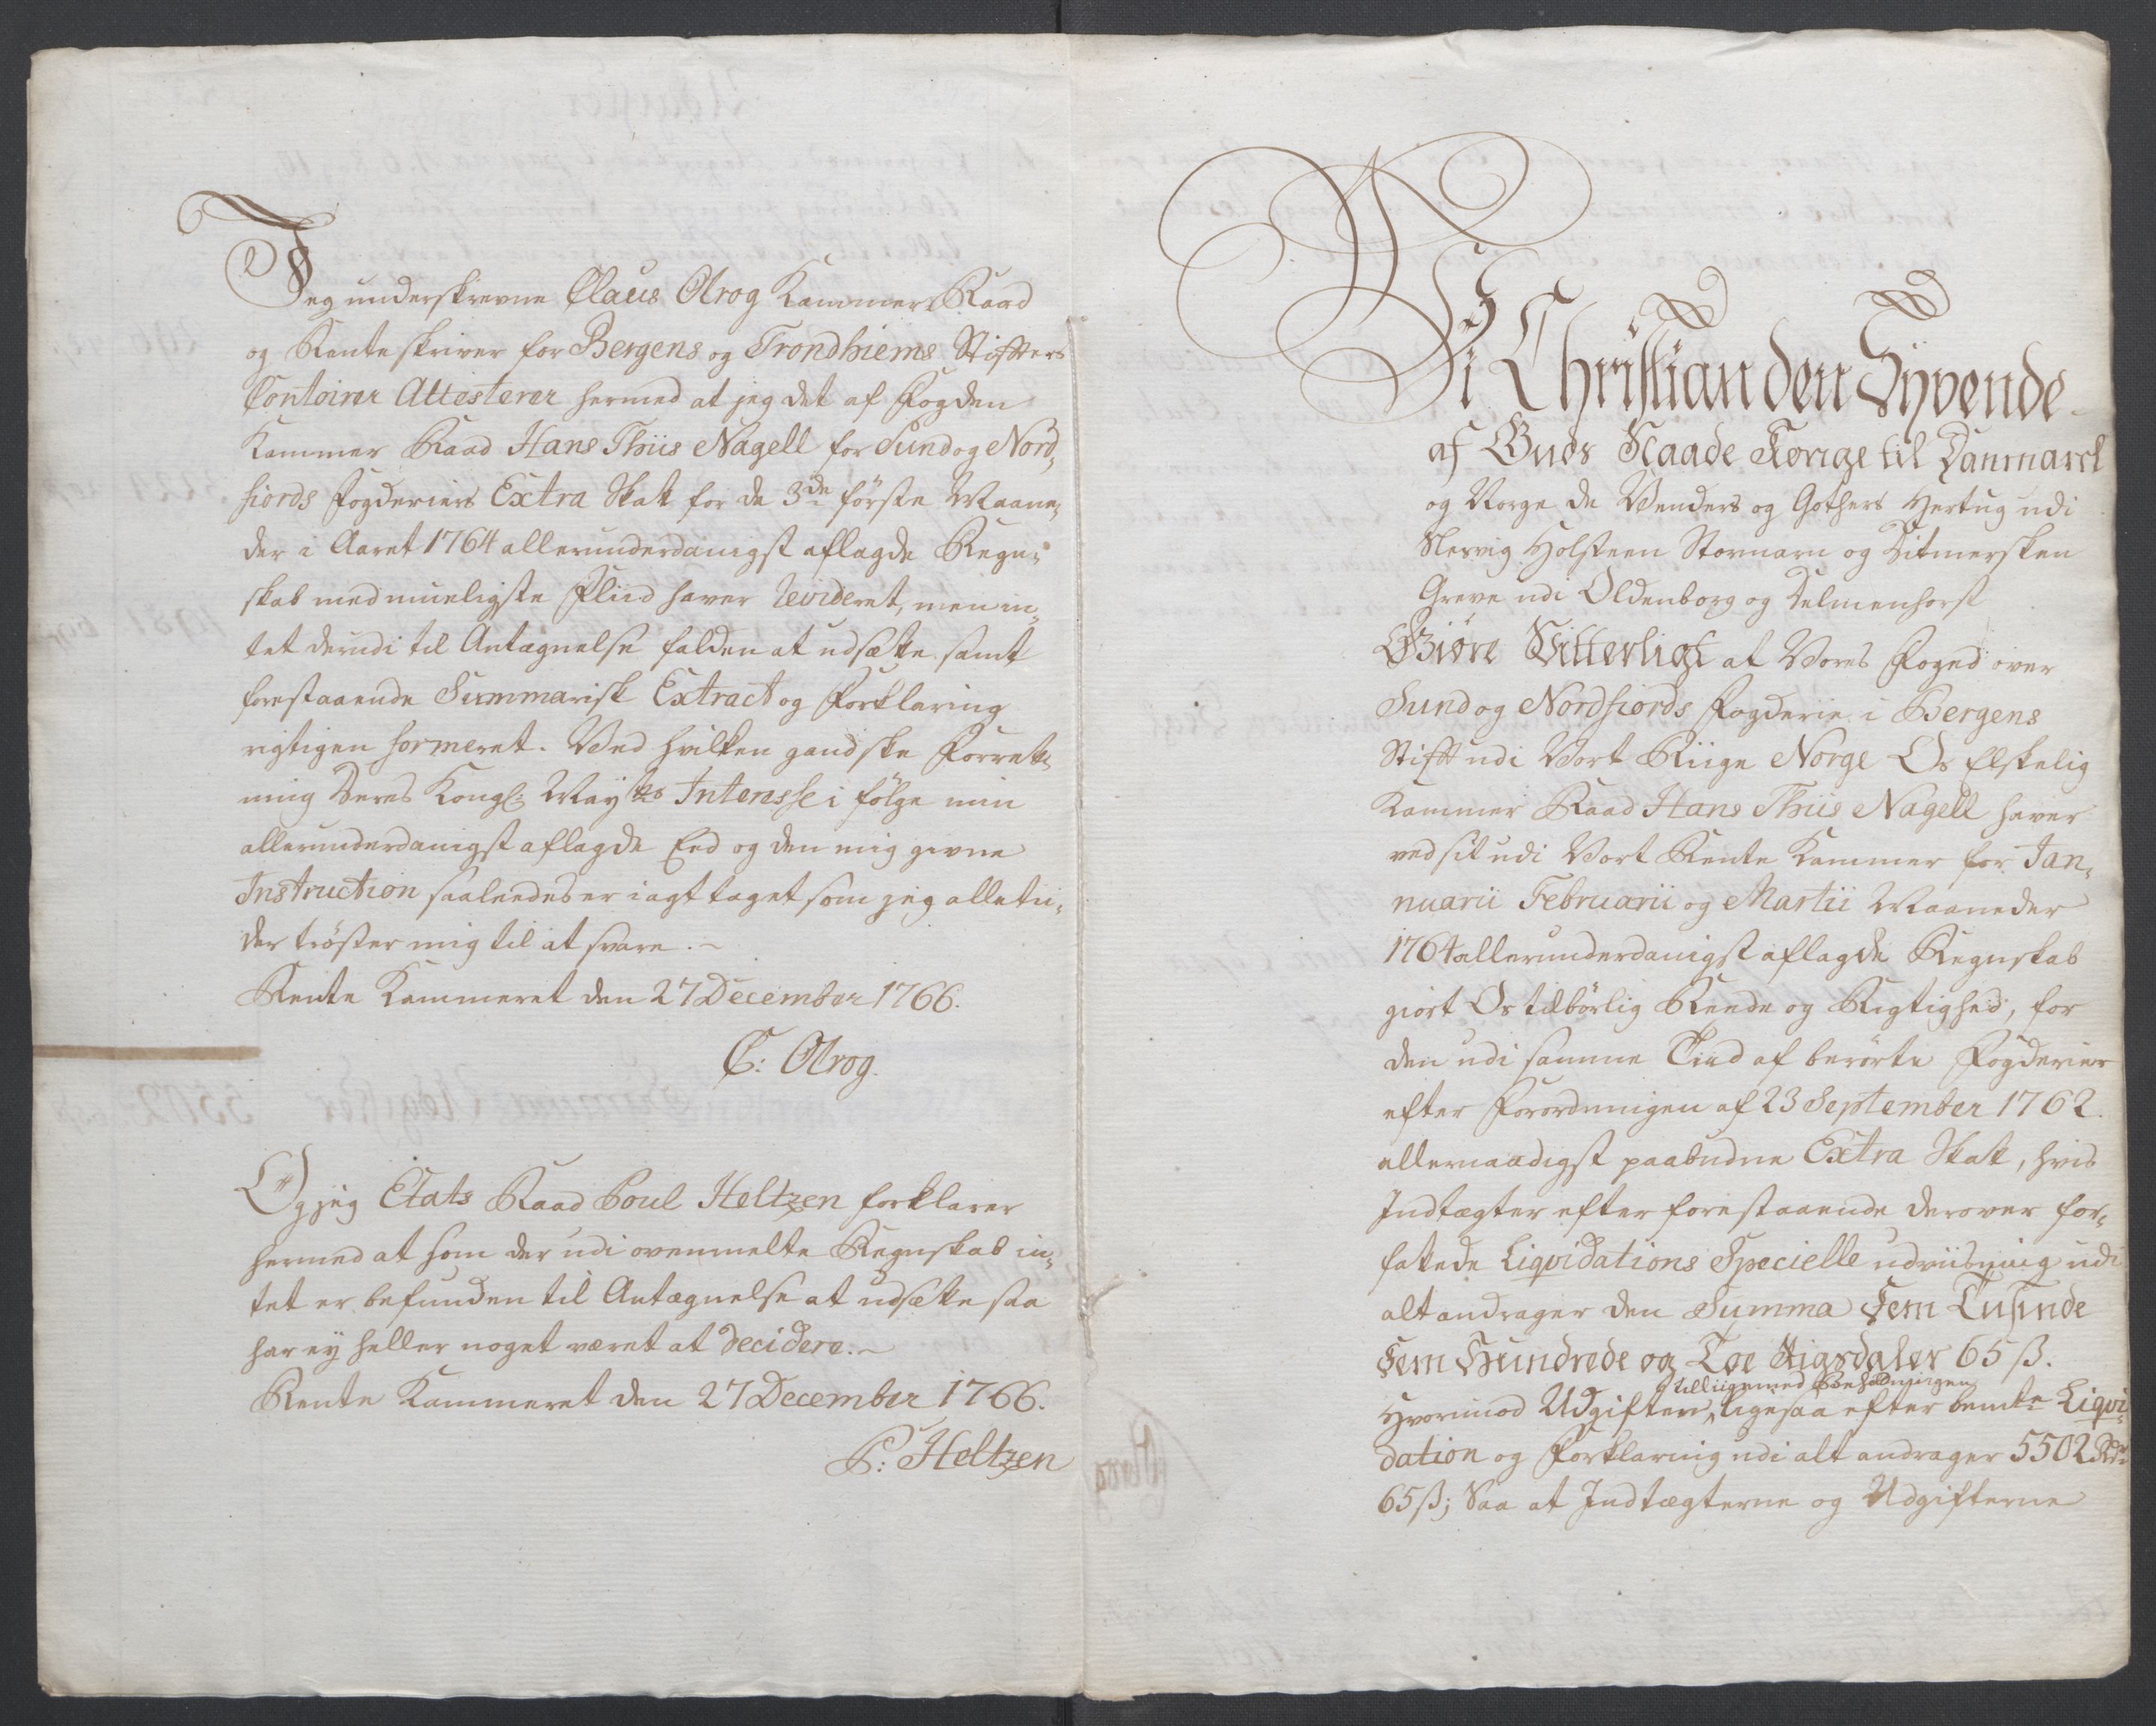 Jeg underskrevne Claus Olrog Kammer Raad
og Renteskriver for Bergens og Trondhiems Stifters
Contoirer Attesterer hermed at jeg det af Fogden
Kammer Raad Hans Thiis Nagell for Sund og Nord-
fiords Fogderiers Extra Skatt for de 3de förste Maane-
der i Aaret 1764 allerunderdanigst aflagde Regn-
skab med mueligste Fliid haver Revideret, men in-
tet derudi til Antægnelse falden at udsætte samt
forestaaende Summarisk Extract og Forklaring
rigtigen formeret. Ved hvilken gandske Forrett-
ning Deres Kongl: Mayts Interesse i fölge min
allerunderdanigst aflagde Eed og den mig givne
Instruction saaleedes er iagttaget som jeg alletii-
der tröster mig til at svare.
Rente Kammeret den 27 December 1766.
C: Olrog.
Og jeg Etats Raad Poul Heltzen forklarer
hermed at som der udi ovenmelte Regnskab in-
tet er befunden til Antægnelse at udsætte saa
har ey heller noget været at decidere.
Rente Kammeret den 27 December 1766.
P: Heltzen
Vi Christian den Syvende
af Guds Naade Konge til Danmarck
og Norge de Venders og Gothers Hertug udi
Slesvig Holsteen Stormarn og Ditmersken
Greve udi Oldenborg og Delmenhorst
Giöre Vitterligt at Vores Foged over
Sund og Nordfiords Fogderie i Bergens
Stifft udi Vort Riige Norge Os Elskelig
Kammer Raad Hans Thiis Nagell haver
ved sit udi Vort Rente Kammer for Jan-
nuarii Februarii og Martii Maaneder
1764 allerunderdanigst aflagde Regnskab
giort Os tilbörlig Reede og Rigtighed, for
den udi samme Tiid af berörte Fogderier
efter Forordningen af 23 September 1762.
allernaadigst paabudne Extra Skatt, hvis
Indtægter efter forestaaende derover for-
fattede Liqvidations Specielle udviisning udi
alt andrager den Summa Fem Tusinde
Fem Hundrede og Toe Rigsdaler 65 ß.
tilliigemed Beholdningen
Hvorimod Udgiften, ligesaa efter bemte Liqvi-
dation og Forklaring udi alt andrager 5502 Rdr
65 ß; Saa at Indtægterne og Udgifterne